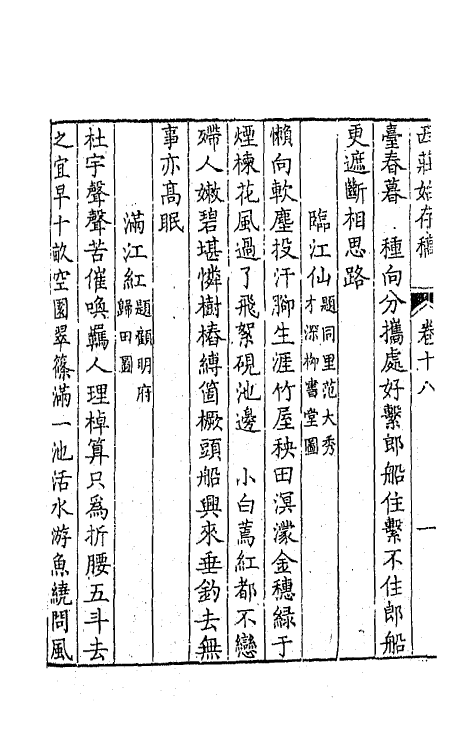 西莊始存稿 卷十八 一
臺春暮　種向分攜處好繫郎船住繫不住郎船
更遮斷相思路
臨江仙題同里范大秀才深柳書堂圖
懶向軟塵投汗腳生涯竹屋秧田溟濛金穗綠于
煙楝花風過了飛絮硯池邊　小白蔫紅都不戀
殢人嫩碧堪憐樹樁縛箇橛頭船興來垂釣去無
事亦高眠
滿江紅題顧明府歸田圖
杜宇聲聲苦催喚羈人理棹算只爲折腰五斗去
之宜早十畝空園翠篠滿一池活水游魚繞問風